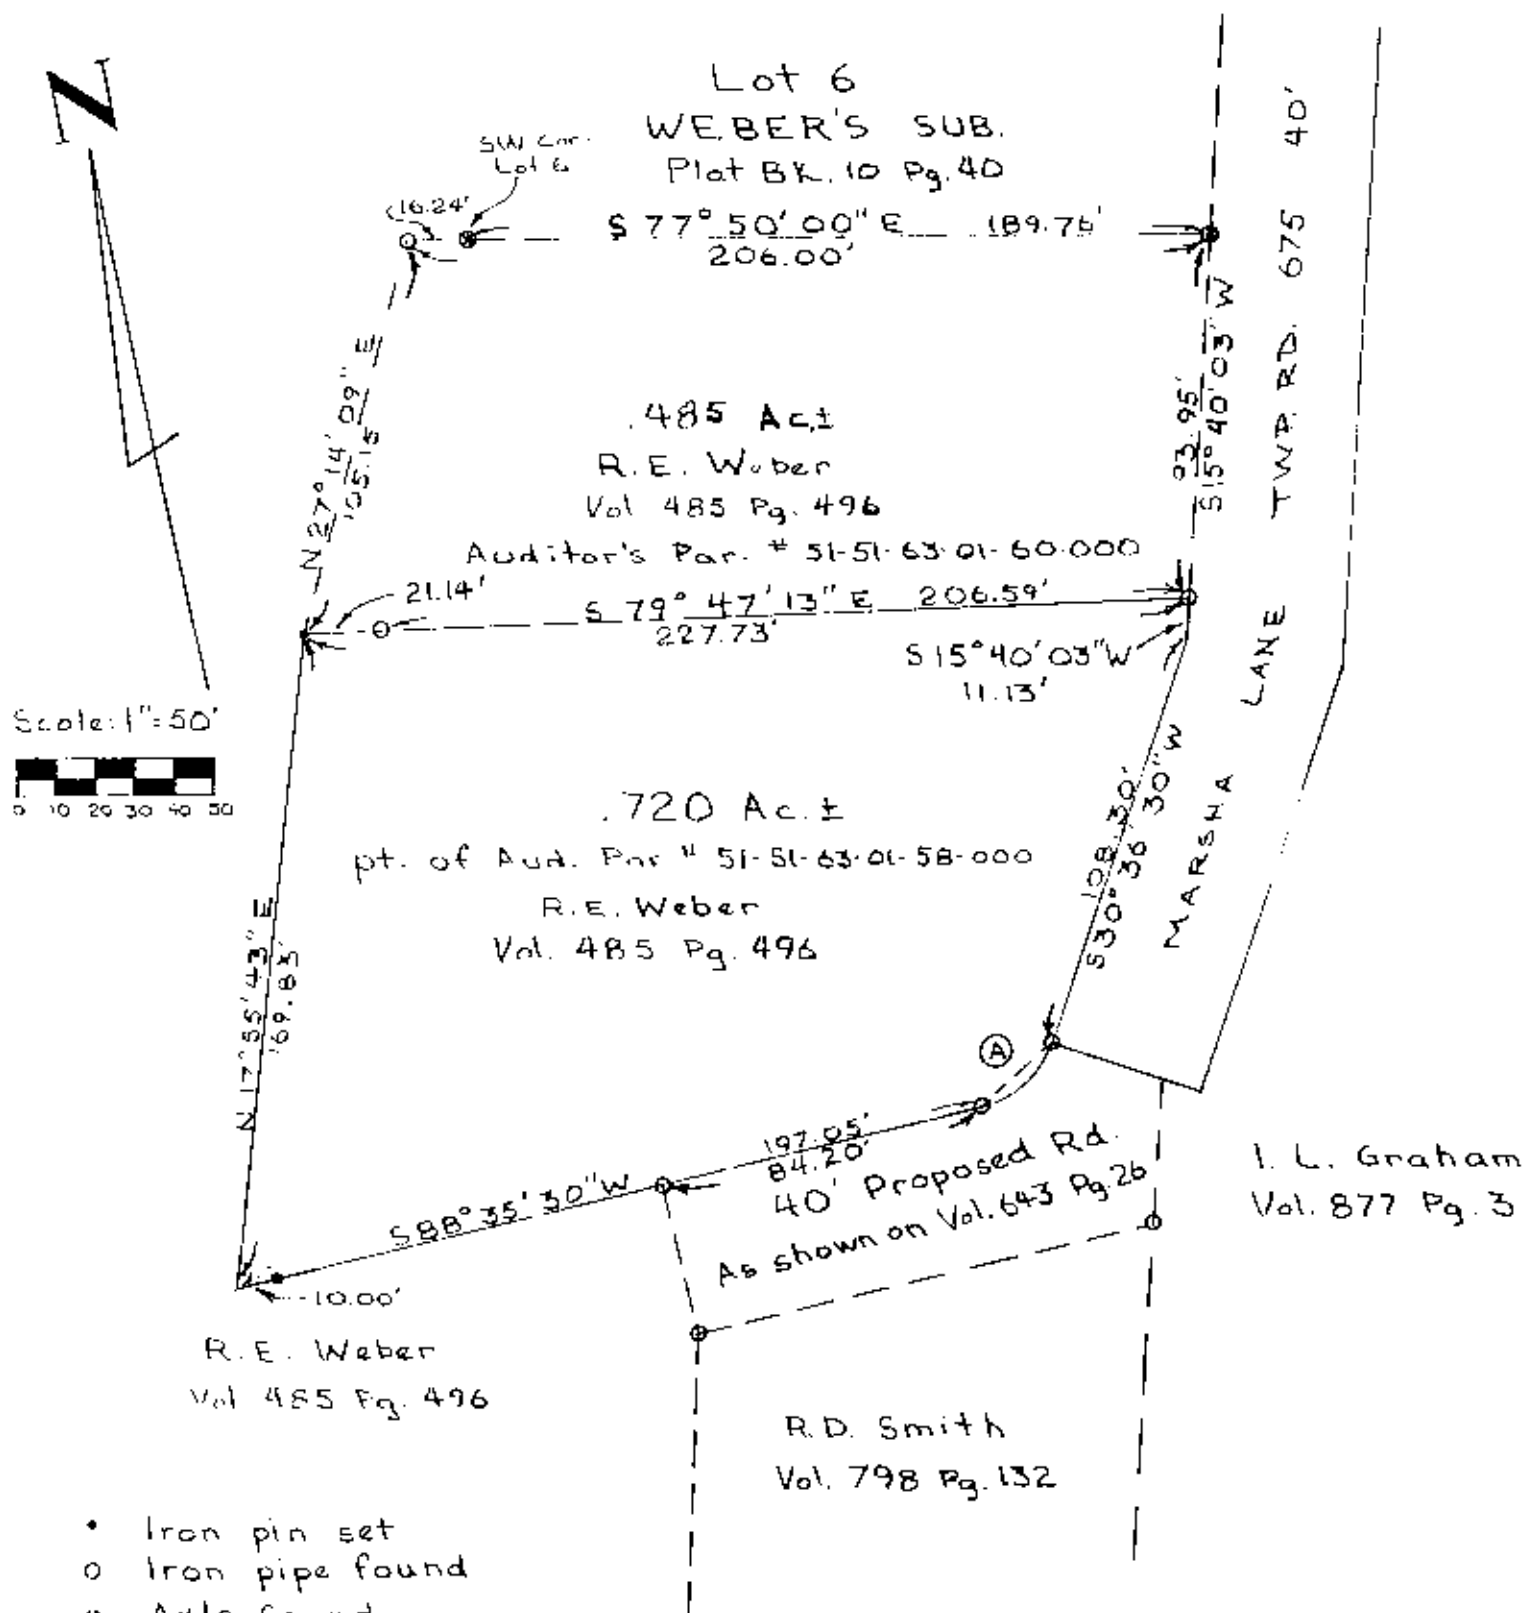 N
Lot 6
WEBER'S SUB.
Plat Bk. 10 Pg. 40
SW Cor.
Lot 6
16.24'
S 77° 50' 00" E 189.76'
206.00'
TWP. RD. 675 40'
N 27° 14' 09" E
105.15
93.95'
S 15° 40' 03" W
.485 Ac.±
R.E. Weber
Vol 485 Pg. 496
Auditor's Par. # 51-51-63-01-60-000
21.14'
S 79° 47' 13" E 206.59'
227.73'
S 15° 40' 03" W
11.13'
MARSHA LANE
Scale: 1" = 50'
0 10 20 30 40 50
.720 Ac. ±
pt. of Aud. Par # 51-51-63-01-58-000
R.E. Weber
Vol. 485 Pg. 496
108.30'
S 30° 36' 30" W
N 17° 55' 43" E
169.83'
A
197.05'
84.20'
S 88° 35' 30" W
40' Proposed Rd.
As shown on Vol. 643 Pg. 26
I. L. Graham
Vol. 877 Pg. 3
10.00'
R.E. Weber
Vol 485 Pg. 496
R.D. Smith
Vol. 798 Pg. 132
Iron pin set
Iron pipe found